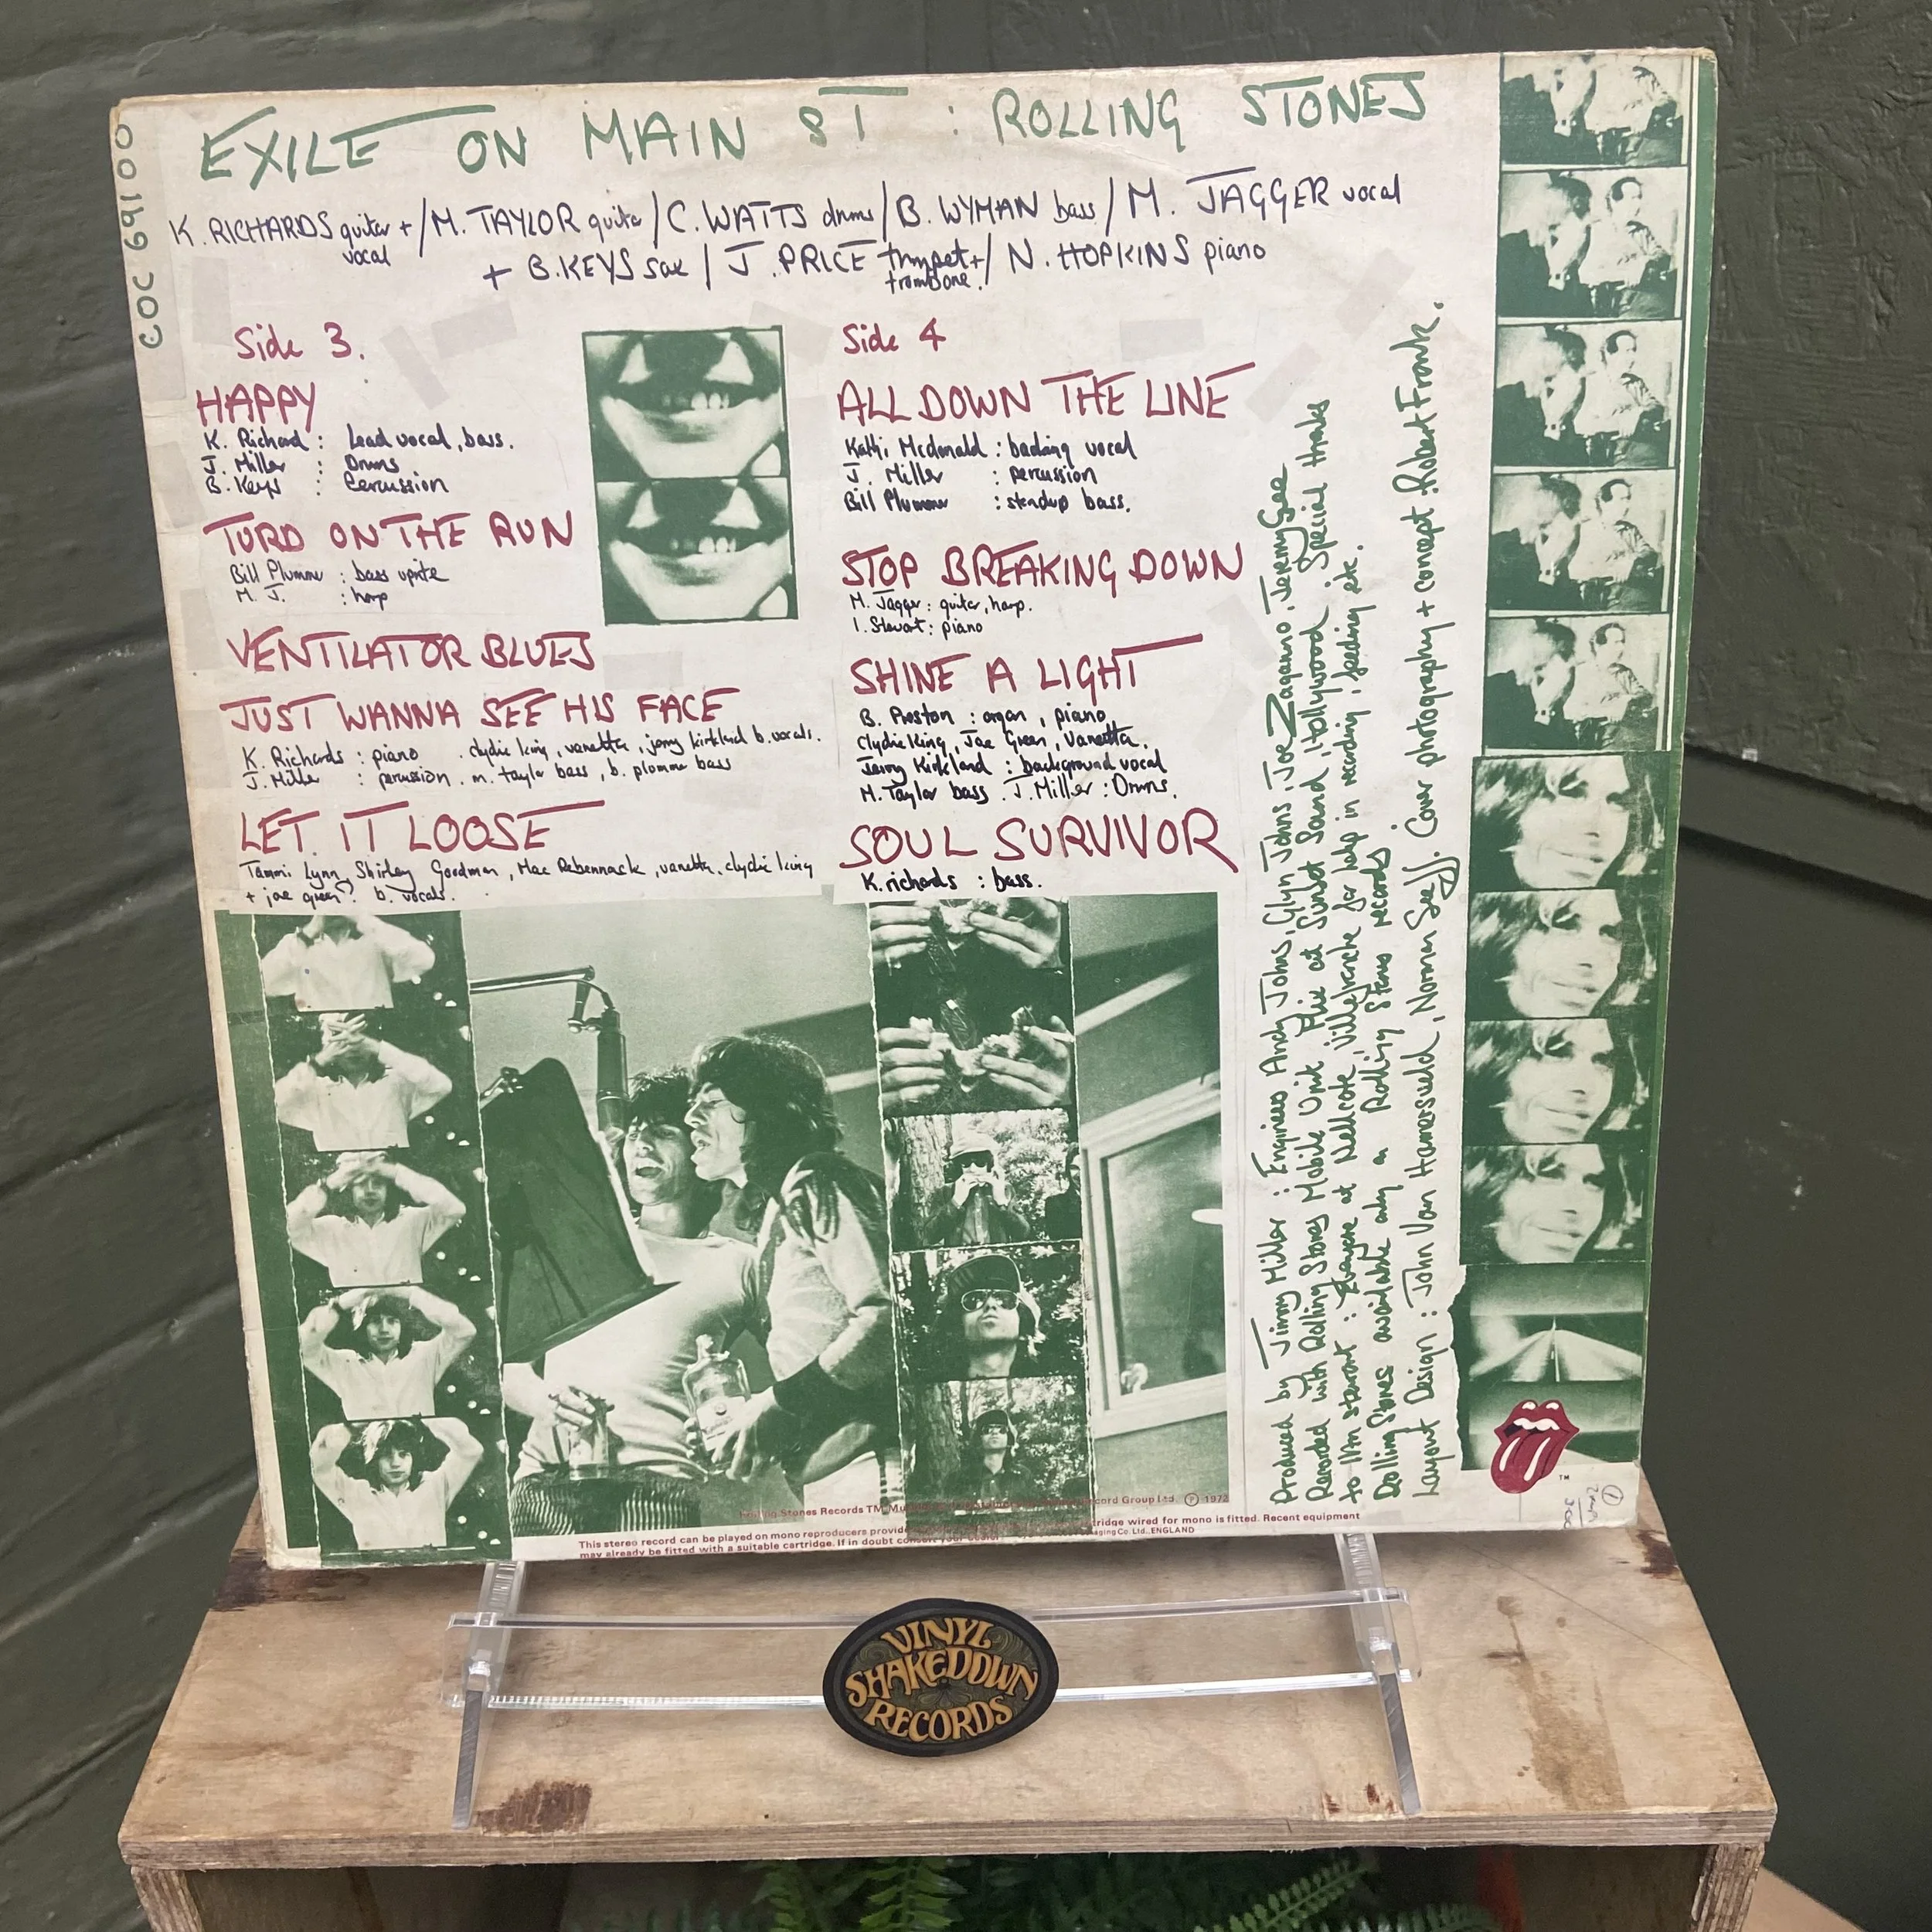 COC 69100
EXILE ON MAIN ST : ROLLING STONES
K. RICHARDS guitar + vocal / M. TAYLOR guitar / C. WATTS drums / B. WYMAN bass / M. JAGGER vocal
+ B. KEYS sax / J. PRICE trumpet + trombone. / N. HOPKINS piano
Side 3.
HAPPY
K. Richard : Lead vocal, bass.
J. Miller : Drums
B. Keys : Percussion
TURD ON THE RUN
Bill Plummer : bass uprite
M. J. : harp
VENTILATOR BLUES
JUST WANNA SEE HIS FACE
K. Richards : piano . clydie king, vanetta, jerry kirkland b. vocals.
J. Miller : percussion . m. taylor bass, b. plommer bass
LET IT LOOSE
Tammi Lynn, Shirley Goodman, Mac Rebennack, vanetta, clydie king
+ joe green? b. vocals.
Side 4
ALL DOWN THE LINE
Kathi Mcdonald : backing vocal
J. Miller : percussion
Bill Plummer : standup bass.
STOP BREAKING DOWN
M. Jagger : guitar, harp.
I. Stewart : piano
SHINE A LIGHT
B. Preston : organ, piano
Clydie King, Joe Green, Vanetta,
Jerry Kirkland : background vocal
M. Taylor bass . J. Miller : Drums.
SOUL SURVIVOR
K. richards : bass.
Produced by Jimmy Miller : Engineers Andy Johns, Glyn Johns, Joe Zagarino, Jeremy Gee
Recorded with Rolling Stones Mobile Unit Mix at Sunset Sound, Hollywood. Special thanks
to Ian stewart : at Nellcote, Villefranche for help in recording, feeding etc.
Rolling Stones available only on Rolling Stones records
Layout Design : John Van Hamersveld, Norman Seeff. Cover photography + concept : Robert Frank.
TM
Rolling Stones Records TM Record Group Ltd. Ⓟ 1972
This stereo record can be played on mono reproducers provided cartridge wired for mono is fitted. Recent equipment
may already be fitted with a suitable cartridge. If in doubt consult your dealer. Packaging Co. Ltd. ENGLAND
VINYL
SHAKEDOWN
RECORDS